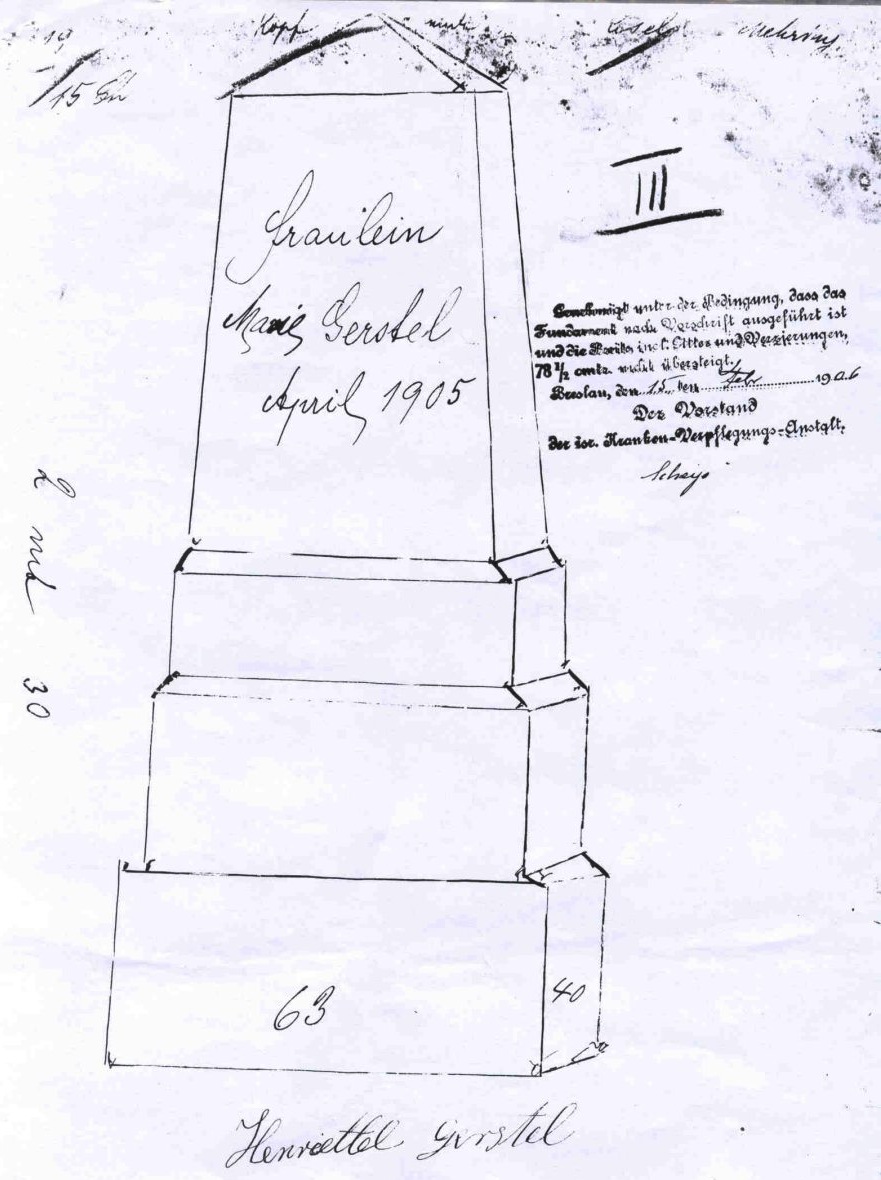 19
Kopf
Mehring.
15
III
Fräulein
Marie Gerstel
April 1905
Genehmigt unter der Bedingung, dass das
Fundament nach Vorschrift ausgeführt ist
und die Breite incl. Gitter und Verzierungen,
78 1/2 cmtr. nicht übersteigt.
Breslau, den 15 ten Feb 1906
Der Vorstand
der isr. Kranken-Verpflegungs-Anstalt.
30
63
40
Henriettel Gerstel